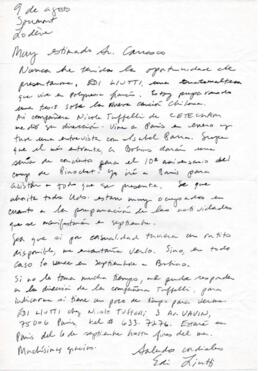 9 de agosto
Lodève
Muy estimado Sr. Carrasco
Nunca he tenido la oportunidad de
presentarme, EDI LIUTTI, una
que vive en Polynesia francés. Estoy preparando
una tesis sobre la Nueva Canción Chilena.
Mi compañera Nicole Tuffelli de CETECLAM
me dió su dirección. Vine a París en enero y
tuve una entrevista con Isabel Parra. Supongo
que el mes entrante a Bobino darán una
serie de conciertos para el 10º aniversario del
de Pinochet. Yo iré a París para
asistir a todo que se presenta. Se que
ahorita todo Uds están muy ocupados en
cuanto a la preparación de las actividades
que se manifestarán en septiembre.
que si por casualidad tuviera un ratito
disponible, me encantaría verlo. Sino en todo
caso lo veré en septiembre a Bobino.
Si no le toma mucho tiempo, me puede responder
a la dirección de la compañera Tuffelli, para
indicarme si tiene un poco de tiempo para vernos.
EDI LIUTTI chez NICOLE TUFFELLI, 3 AV. VAVIN,
75006 París, tel # 633.7276. Estaré en
París del 6 de septiembre hasta fines del mes.
Muchísimas gracias. Saludos cordiales
Edi Liutti